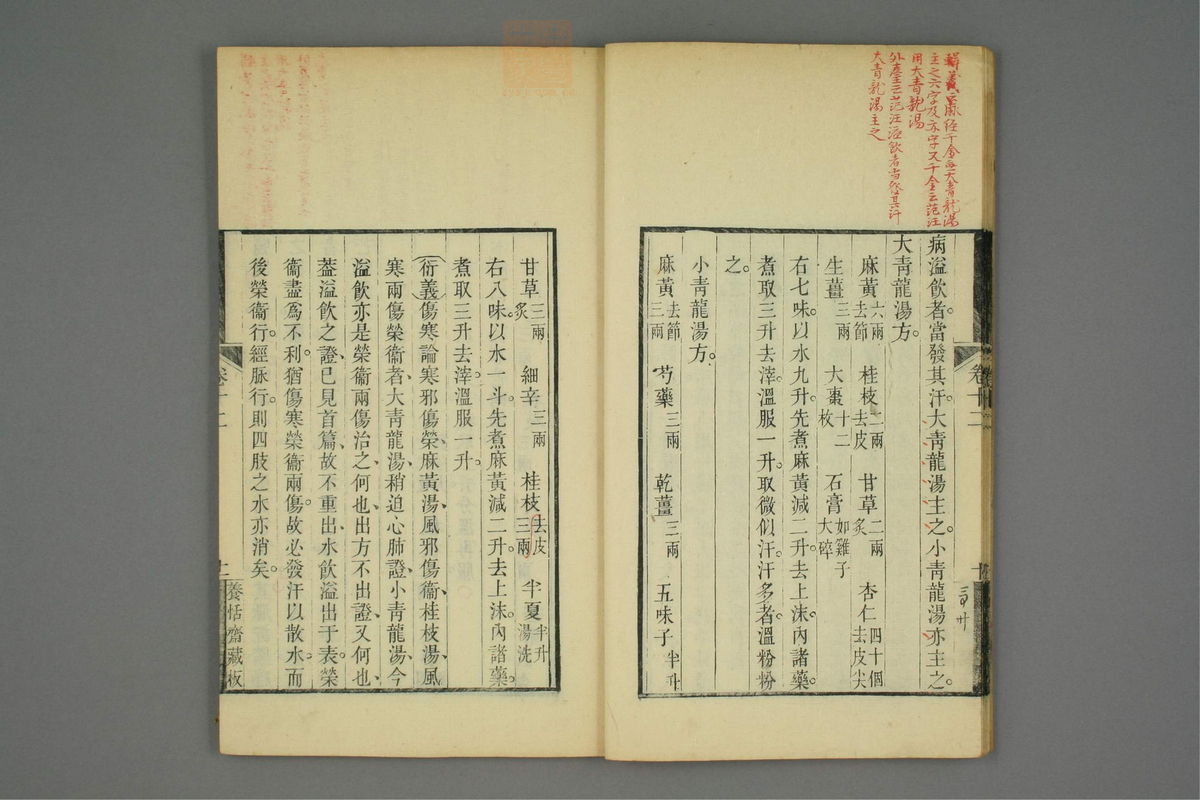 辯義脉経千金無大青龍湯
主之六字及亦字又千金云范汪
用大青龍湯
外臺云范汪溢飲者當發其汗
大青龍湯主之
病溢飲者。當發其汗。大靑龍湯主之。小靑龍湯亦主之。
大靑龍湯方。
麻黃六兩去節 桂枝二兩去皮 甘草二兩炙 杏仁四十個去皮尖
生薑三兩 大棗十二枚 石膏如雞子大碎
右七味。以水九升。先煮麻黃減二升。去上沫。內諸藥。
煮取三升去滓。溫服一升。取微似汗。汗多者。溫粉粉
之。
小靑龍湯方。
麻黃去節三兩 芍藥三兩 乾薑三兩 五味子半升
卷十二
十
甘草三兩炙 細辛三兩 桂枝去皮三兩 半夏半升湯洗
右八味。以水一斗。先煮麻黃減二升。去上沫。內諸藥。
煮取三升去滓溫服一升。
衍義傷寒論寒邪傷榮、麻黃湯、風邪傷衞、桂枝湯、風
寒兩傷榮衞者、大靑龍湯、稍迫心肺證、小靑龍湯、今
溢飲亦是榮衞兩傷、治之何也、出方不出證、又何也、
葢溢飲之證、已見首篇、故不重出、水飲溢出于表。榮
衞盡爲不利。猶傷寒榮衞兩傷。故必發汗以散水。而
後榮衞行。經脉行。則四肢之水亦消矣。
卷十二
十一
養恬齋藏板